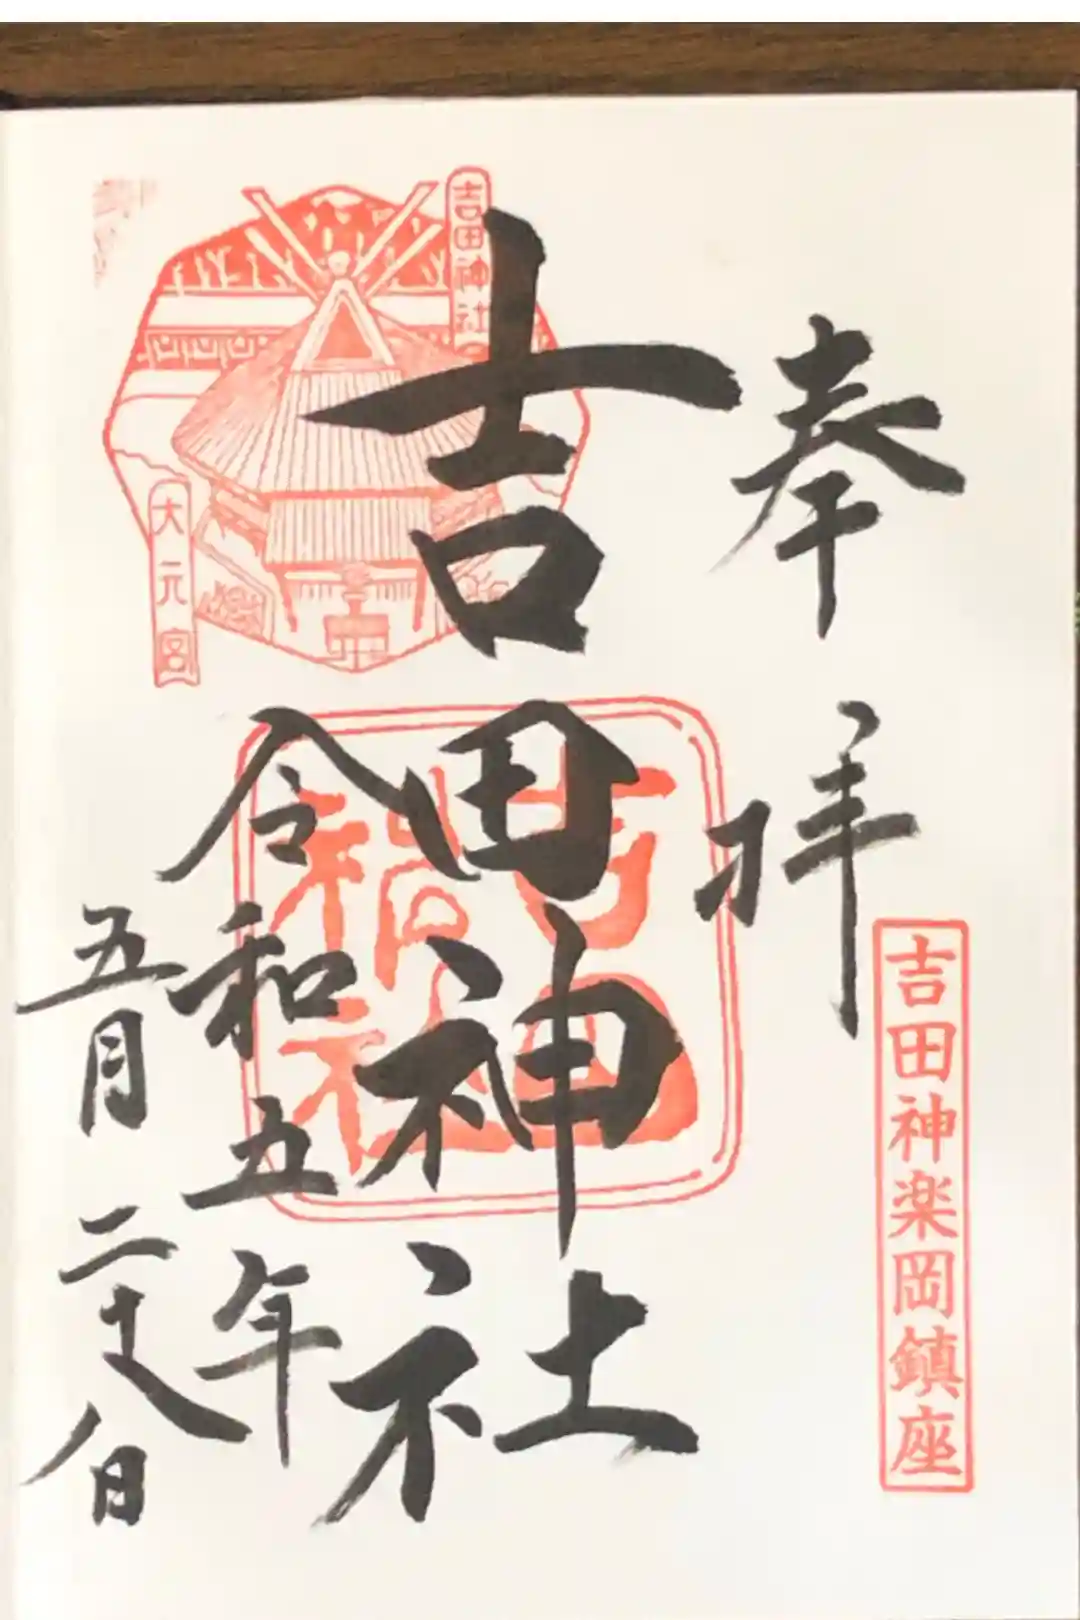 奉拝
吉田神楽岡鎮座
吉田神社
吉田神社
大元宮
吉田
神社
令和五年
五月二十八日